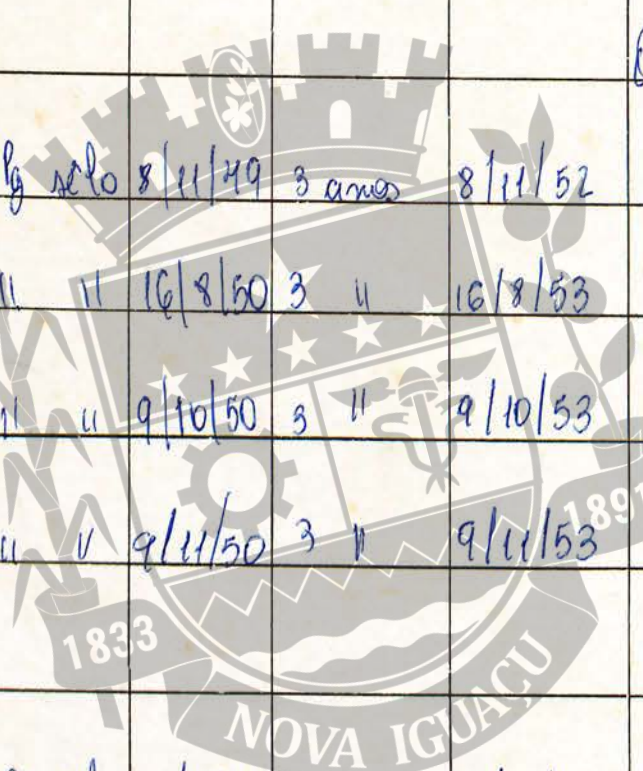 Pg sêlo 8/11/49 3 anos 8/11/52
" " 16/8/50 3 " 16/8/53
" " 9/10/50 3 " 9/10/53
" " 9/11/50 3 " 9/11/53
1833
1891
NOVA IGUAÇU